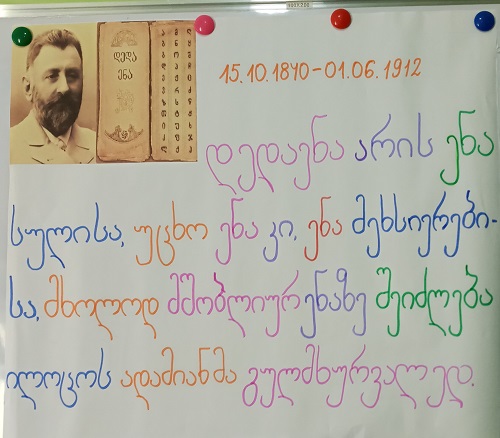 დედა
ენა
15.10.1840-01.06.1912
დედაენა არის ენა
სულისა, უცხო ენა კი, ენა მეხსიერები-
სა, მხოლოდ მშობლიურ ენაზე შეიძლება
ილოცოს ადამიანმა გულმხურვალედ.